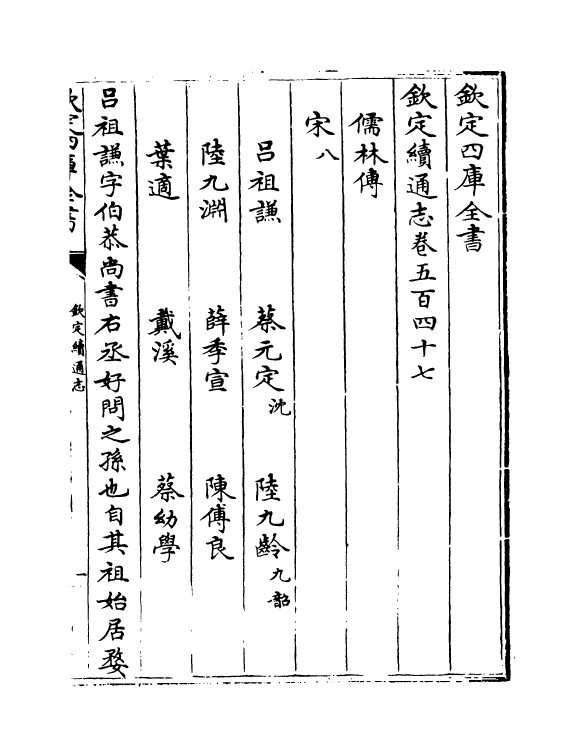 欽定四庫全書
欽定續通志卷五百四十七
儒林傳
宋八
呂祖謙 蔡元定沈 陸九齡九韶
陸九淵 薛季宣 陳傅良
葉適 戴溪 蔡幼學
呂祖謙字伯恭尚書右丞好問之孫也自其祖始居婺
欽定四庫全書
欽定續通志
一